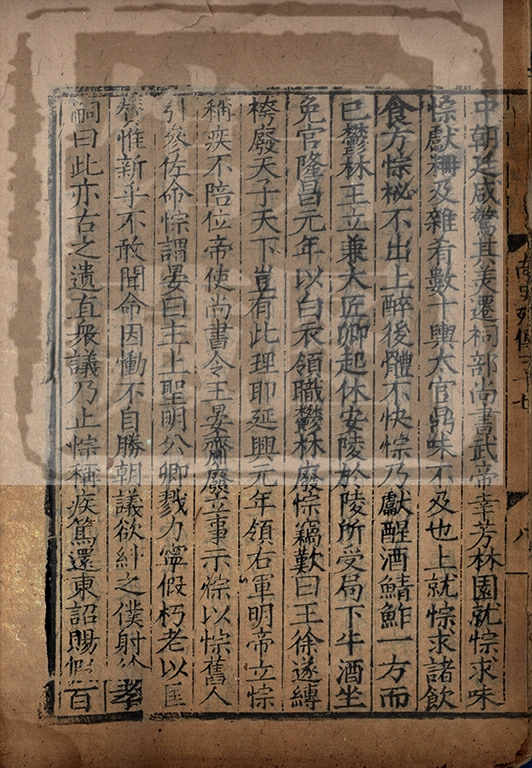 中朝廷咸驚其美遷祠部尚書武帝幸芳林園就悰求味
悰獻糆及雜肴數十輿太官鼎味不及也上就悰求諸飲
食方悰祕不出上醉後體不快悰乃獻醒酒鯖鮓一方而
巳鬱林王立兼大匠卿起休安陵於陵所受局下牛酒坐
免官隆昌元年以白衣領職鬱林廢悰竊歎曰王徐遂縳
袴廢天子天下豈有此理耶延興元年領右軍明帝立悰
稱疾不陪位帝使尚書令王晏齎廢立事示悰以悰舊人
引參佐命悰謂晏曰主上聖明公卿戮力寧假朽老以匡
賛惟新乎不敢聞命因慟不自勝朝議欲糾之僕射徐孝
嗣曰此亦古之遺直衆議乃止悰稱疾篤還東詔賜假百